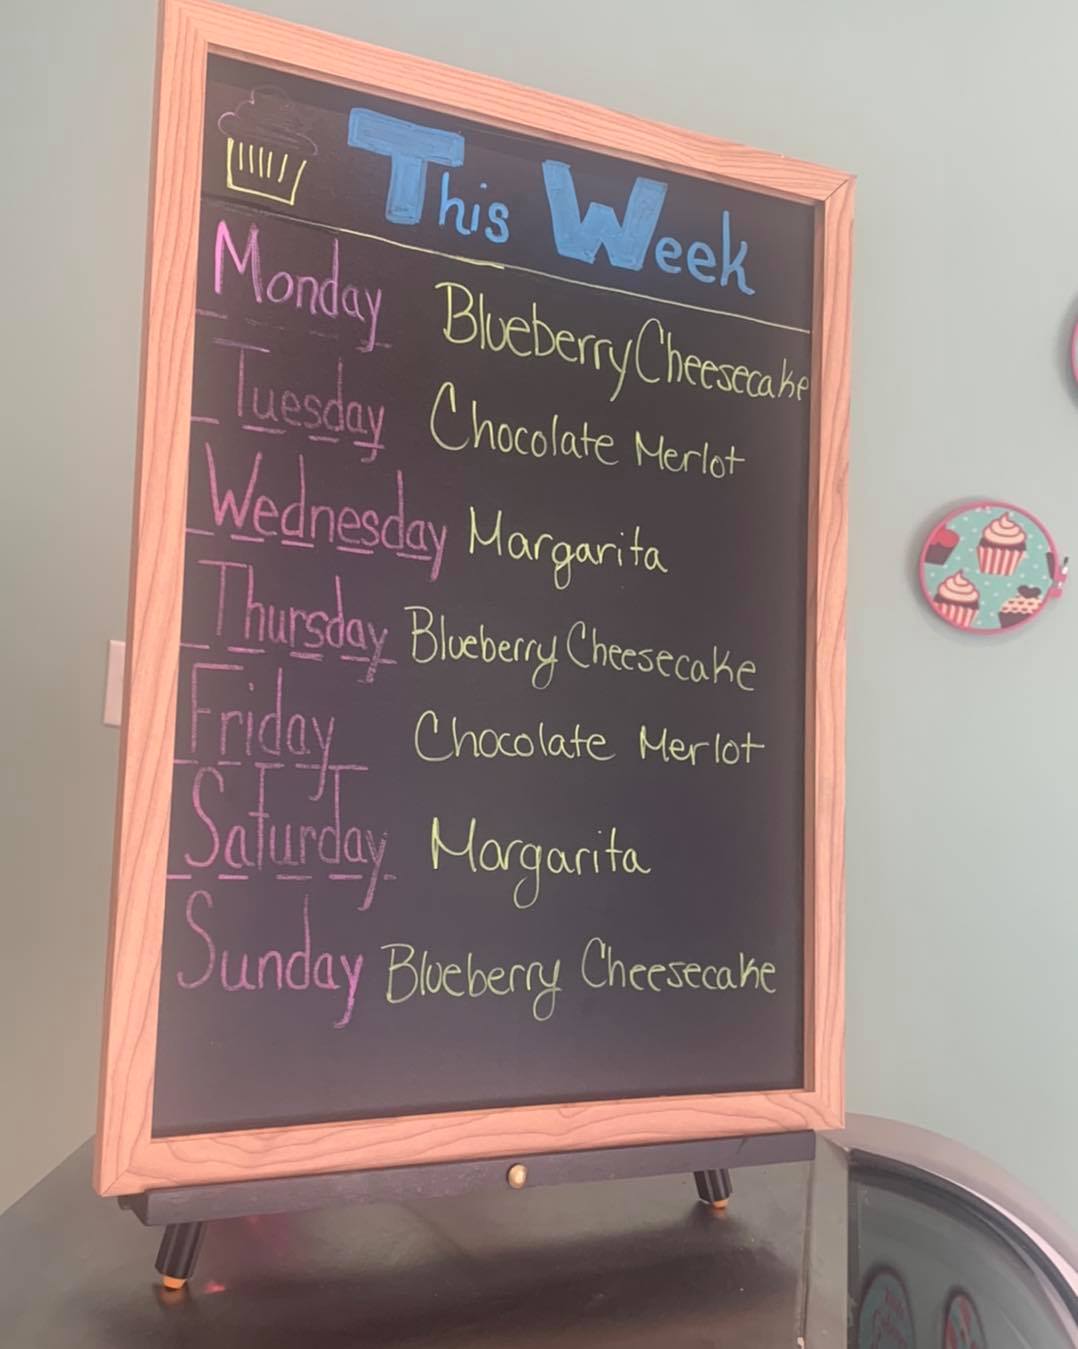 This Week
Monday Blueberry Cheesecake
Tuesday Chocolate Merlot
Wednesday Margarita
Thursday Blueberry Cheesecake
Friday Chocolate Merlot
Saturday Margarita
Sunday Blueberry Cheesecake